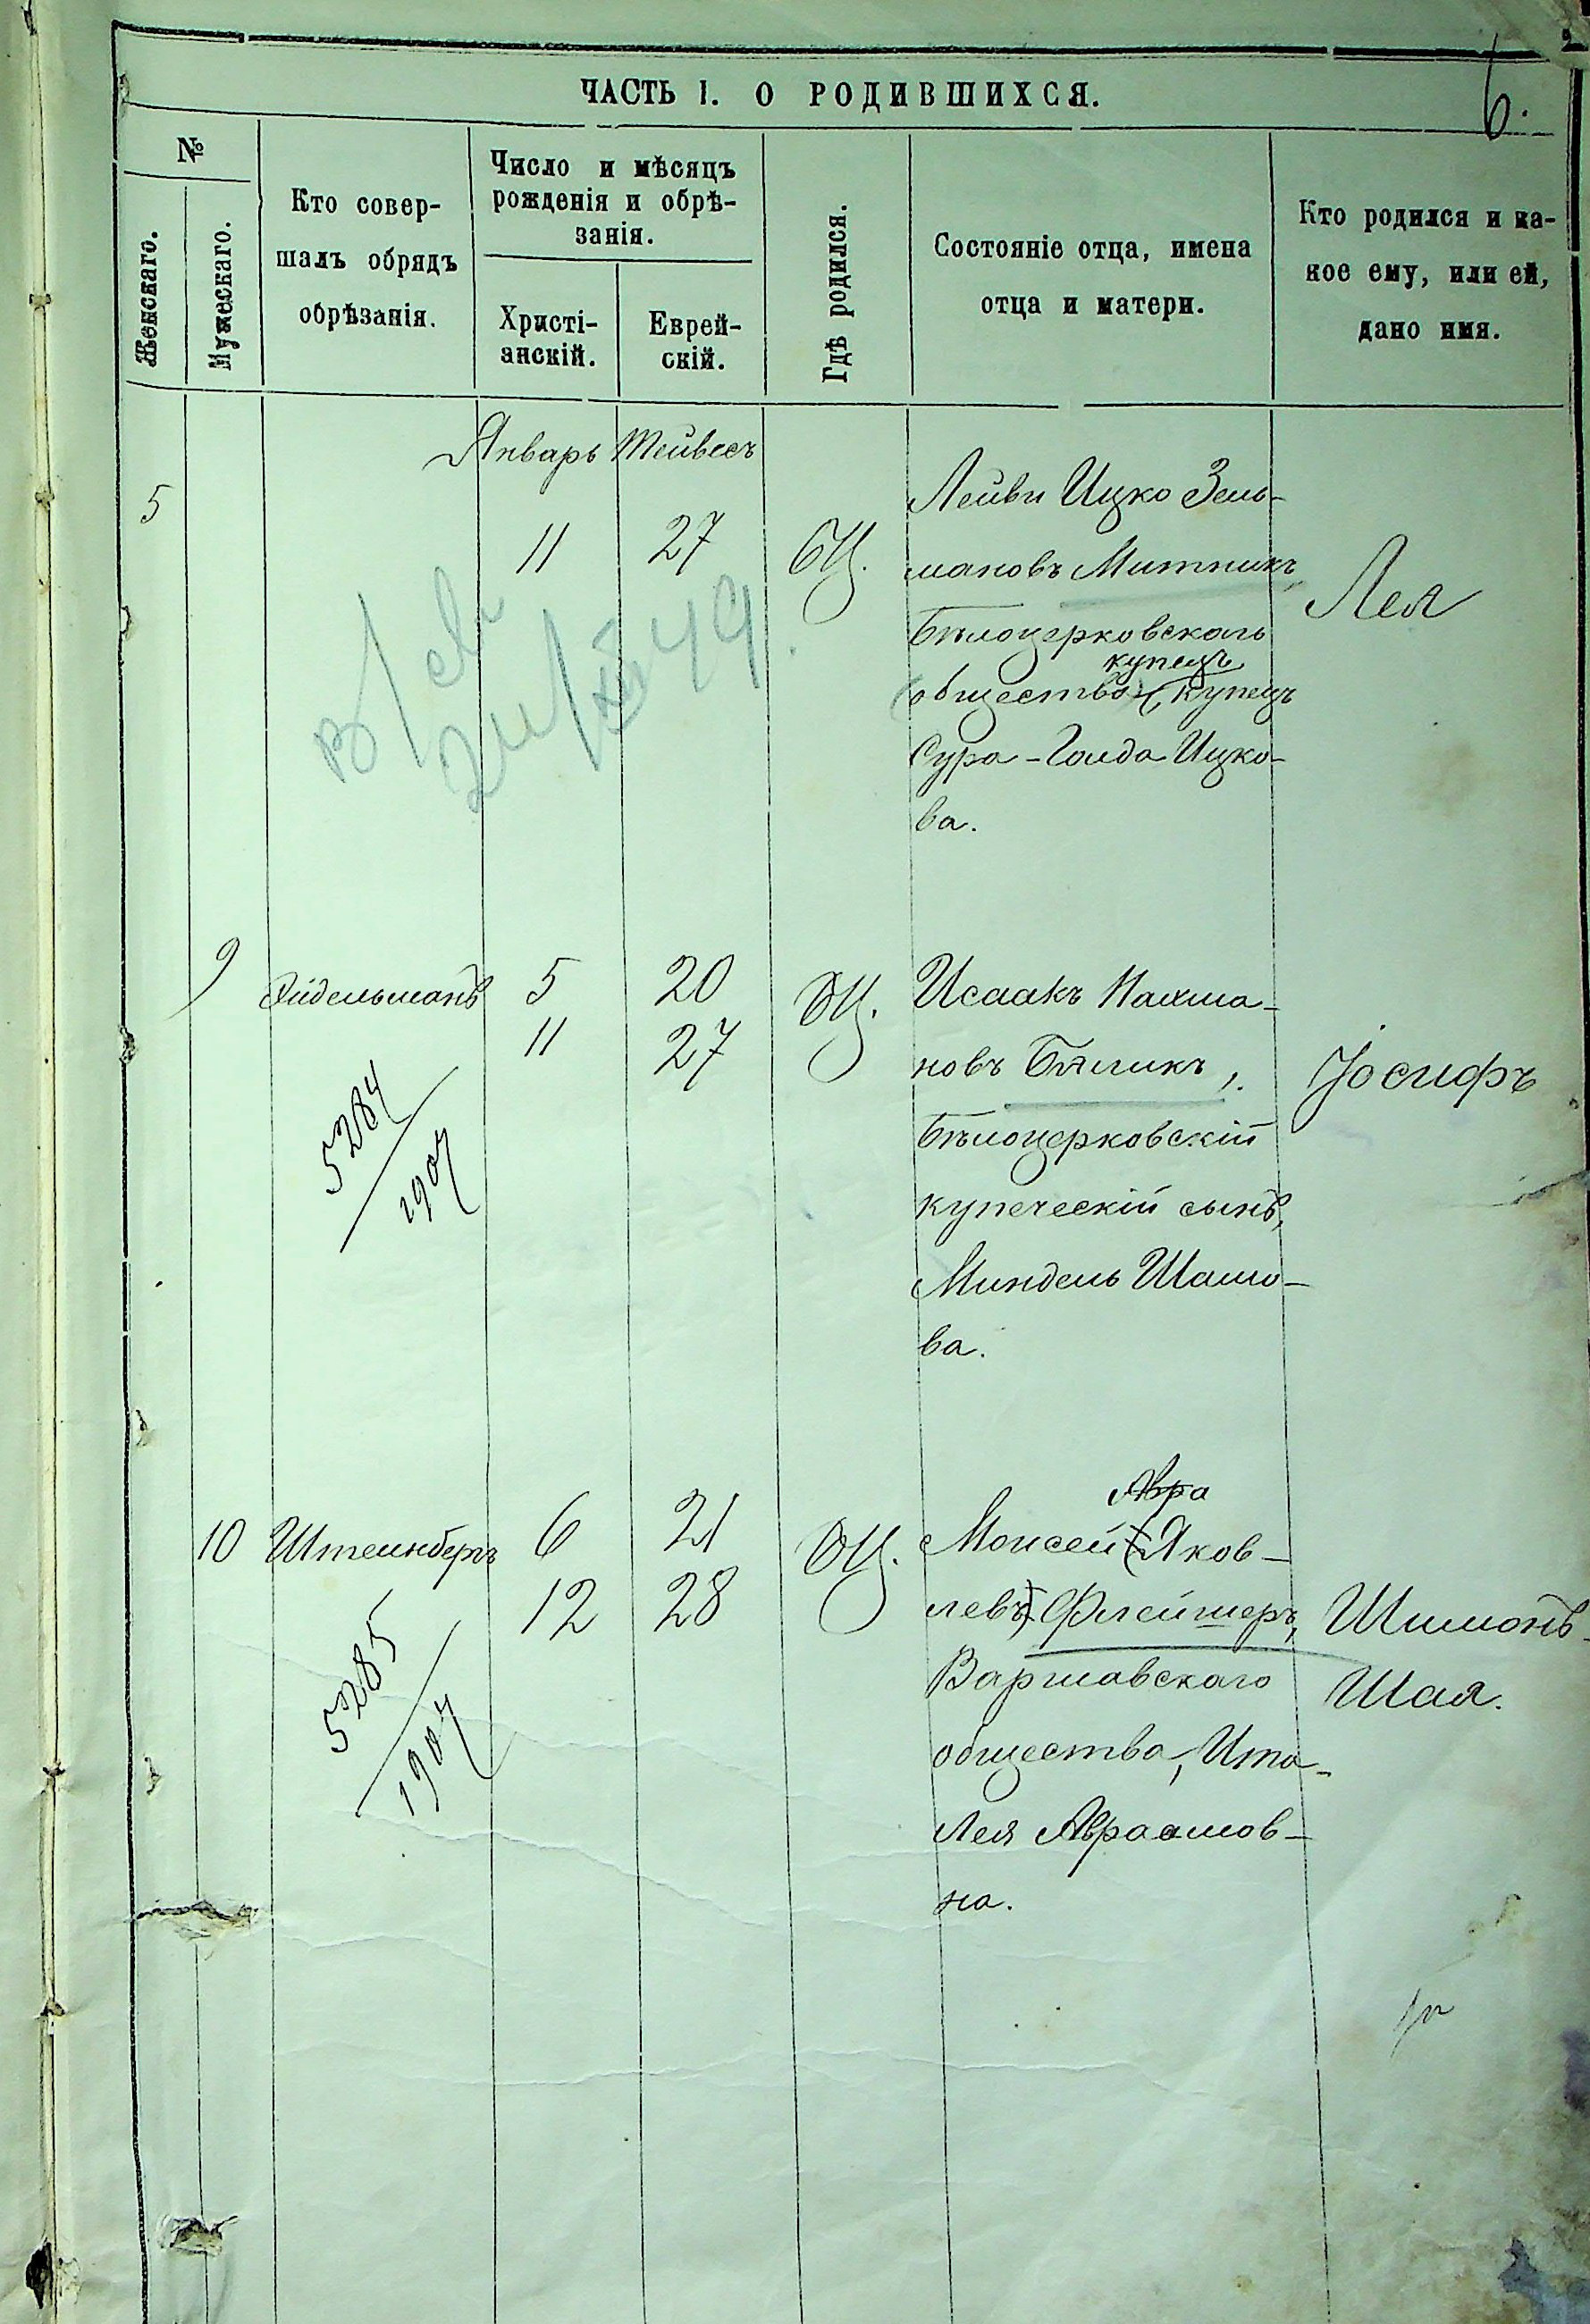 6.
ЧАСТЬ I. О РОДИВШИХСЯ.
№
Женскаго.
Мужескаго.
Кто совер-
шалъ обрядъ
обрѣзанія.
Число и мѣсяцъ
рожденія и обрѣ-
занія.
Христі-
анскій.
Еврей-
скій.
Гдѣ родился.
Состояніе отца, имена
отца и матери.
Кто родился и ка-
кое ему, или ей,
дано имя.
Январь Тейвесъ
5
11 27 БЦ.
Лейви Ицко Зель-
мановъ Митникъ,
Бѣлоцерковскаго
купецъ
общества (купецъ
Сура-Голда Ицко-
ва.
Лея
9 Эйдельманъ 5 20 БЦ.
11 27
5284
1907
Исаакъ Нахма-
новъ Бяликъ,
Бѣлоцерковскій
купеческій сынъ,
Миндель Шамо-
ва.
Іосифъ
10 Штейнбергъ 6 21 БЦ.
12 28
5285
1907
Авра
Моисей (Яков-
левъ) Флейшеръ,
Варшавскаго
общества, Ита-
Лея Авраамов-
на.
Шимонъ-
Шая.